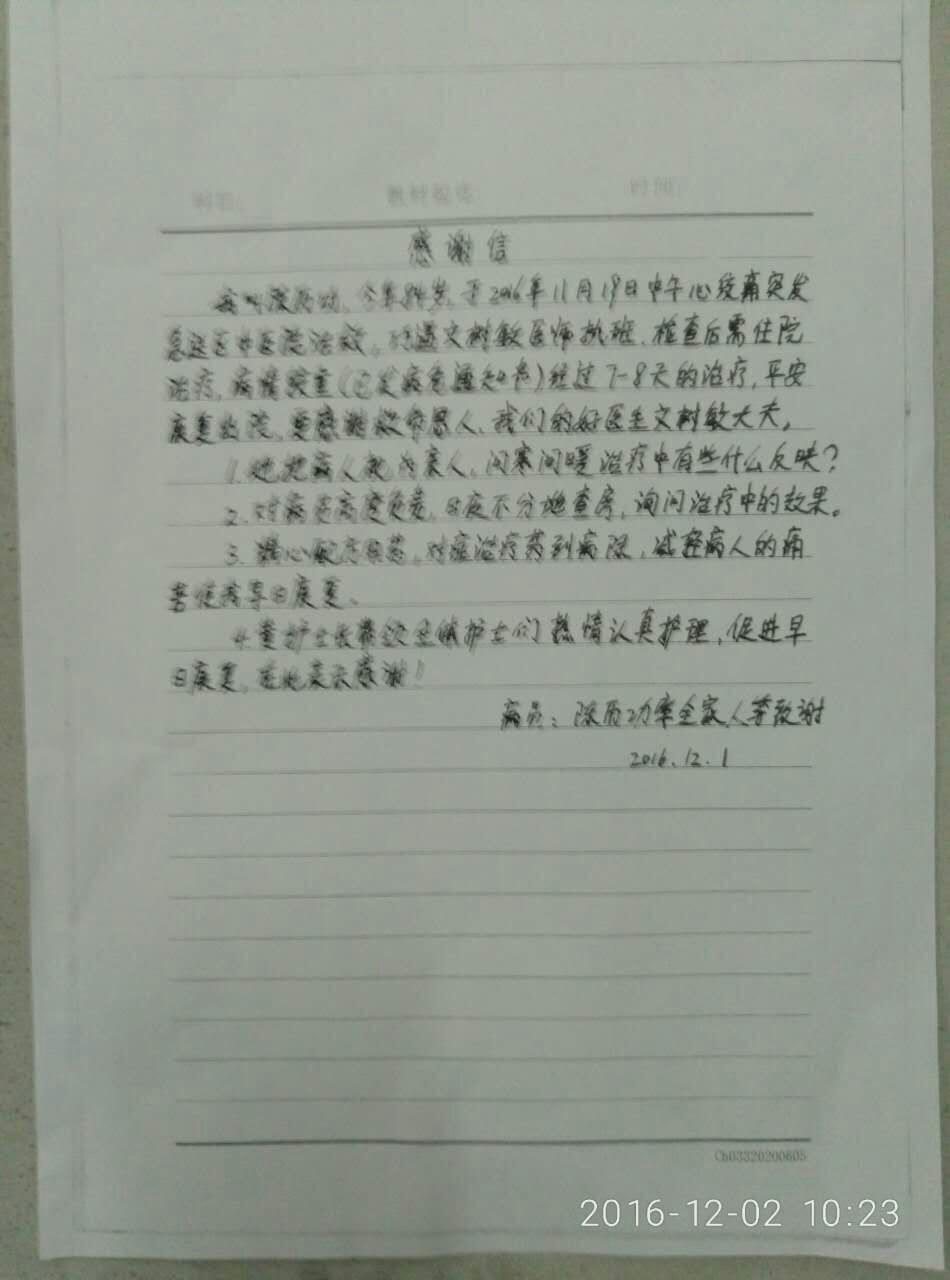 科目: 教研组长 时间:
感谢信
我叫陈历功、今年84岁,于2016年11月19日中午心绞痛突发
急送区中医院治救。巧遇文树敏医师排班、检查后需住院
治疗,病情较重(已发病危通知书)经过7-8天的治疗,平安
康复出院,要感谢救命恩人、我们的好医生文树敏大夫。
1.她把病人视为亲人、问寒问暖治疗中有些什么反映?
2.对病员高度负责,日夜不分地查房,询问治疗中的效果。
3.精心配方用药,对症治疗药到病除,减轻病人的痛
苦使我早日康复、
4.董护士长带领全体护士们热情认真护理,促进早
日康复,在此表示感谢!
病员:陈历功率全家人等致谢
2016.12.1
Ch03320200605
2016-12-02 10:23